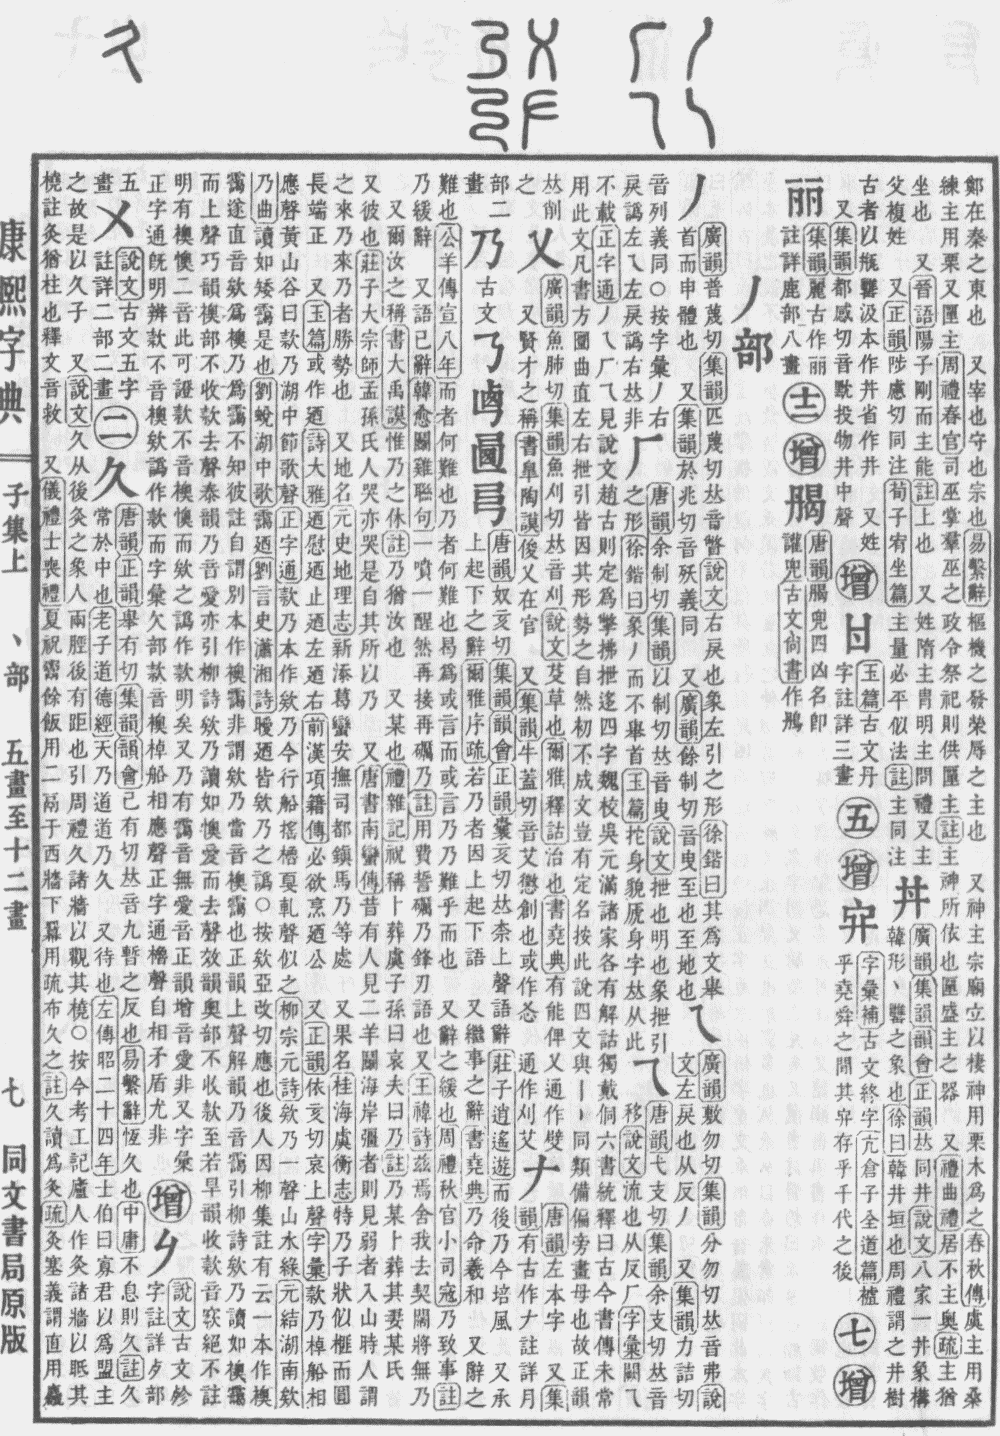 鄭在秦之東也　又宰也守也宗也易繫辭樞機之發榮辱之主也　又神主宗廟立以棲神用栗木爲之春秋傳虞主用桑
練主用栗又匣主周禮春官司巫掌羣巫之政令祭祀則供匣主註主神所依也匣盛主之器　又禮曲禮居不主奧疏主猶
坐也　又晉語陽子剛而主能註上也　又姓隋主胄明主問禮又主
父複姓　又正韻陟慮切同注荀子宥坐篇主量必平似法註主同注
丼
廣韻集韻韻會正韻𠀤同井說文八家一井象構
韓形丶罋之象也徐曰韓井垣也周禮謂之井樹
古者以甁罋汲本作丼省作井　又姓
又集韻都感切音黕投物井中聲
增
玉篇古文丹
字註詳三畫
五
增
字彙補古文終字亢倉子全道篇
乎堯舜之閒其存乎千代之後
七
增
丽
集韻麗古作丽
註詳鹿部八畫
十二
增
唐韻兜四凶名卽
讙兜古文尙書作
丿部
丿
廣韻普蔑切集韻匹蔑切𠀤音瞥說文右戾也象左引之形徐鍇曰其爲文舉
首而申體也　又集韻於兆切音殀義同　又廣韻餘制切音曳至也至地也
乀
廣韻敷勿切集韻分勿切𠀤音弗說
文左戾也从反　又集韻力詰切
音列義同○按字彙丿右
戾譌左乀左戾譌右𠀤非
𠂆
唐韻余制切集韻以制切𠀤音曳說文抴也明也象抴引
之形徐鍇曰象丿而不舉首玉篇拕身貌虒身字𠀤从此
乁
唐韻弋支切集韻余支切𠀤音
移說文流也从反𠂆字彙闕乁
不載正字通丿乀𠂆乁見說文趙古則定爲擎拂抴迻四字魏校吳元滿諸家各有解詁獨戴侗六書統釋曰古今書傳未常
用此文凡書方圜曲直左右抴引皆因其形勢之自然初不成文豈有定名按此說四文與丨亅同類備偏旁畫母也故正韻
𠀤削
之
乂
廣韻魚肺切集韻魚刈切𠀤音刈說文芟草也爾雅釋詁治也書堯典有能俾乂通作㣻　又集
又賢才之稱書皐陶謨俊乂在官　又集韻牛蓋切音艾懲創也或作㣻　通作刈艾
𠂇
唐韻左本字　又集
韻有古作𠂇註詳月
部二
畫
乃
古文
唐韻奴亥切集韻韻會正韻囊亥切𠀤柰上聲語辭莊子逍遙遊而後乃今培風　又承
上起下之辭爾雅序疏若乃者因上起下語　又繼事之辭書堯典乃命羲和　又辭之
難也公羊傳宣八年而者何難也乃者何難也曷爲或言而或言乃乃難乎而也　又辭之緩也周禮秋官小司寇乃致事註
乃緩辭　又語已辭韓愈鬭雞聯句一噴一醒然再接再礪乃註用費誓礪乃鋒刃語也又王褘詩兹焉舍我去契闊將無乃
又爾汝之稱書大禹謨惟乃之休註乃猶汝也　又某也禮雜記祝稱卜葬虞子孫曰哀夫曰乃註乃某卜葬其妻某氏
又彼也莊子大宗師孟孫氏人哭亦哭是自其所以乃　又唐書南蠻傳昔有人見二羊鬭海岸彊者則見弱者入山時人謂
之來乃來乃者勝勢也　又地名元史地理志新添葛蠻安撫司都鎭馬乃等處　又果名桂海虞衡志特乃子狀似榧而圓
長端正　又玉篇或作廼詩大雅廼慰廼止廼左廼右前漢項籍傳必欲烹廼公　又正韻依亥切哀上聲字彙欵乃棹船相
應聲黃山谷曰欵乃湖中節歌聲正字通欵乃本作欸乃今行船搖櫓戛軋聲似之柳宗元詩欸乃一聲山水綠元結湖南欸
乃曲讀如矮靄是也劉蛻湖中歌靄廼劉言史瀟湘詩曖廼皆欸乃之譌○按欸亞改切應也後人因柳集註有云一本作襖
靄遂直音欸爲襖乃爲靄不知彼註自謂別本作襖靄非謂欸乃當音襖靄也正韻上聲解韻乃音靄引柳詩欸乃讀如襖靄
而上聲巧韻襖部不收款去聲泰韻乃音愛亦引柳詩欸乃讀如懊愛而去聲效韻奧部不收款至若旱韻收欵音窾絕不註
明有襖懊二音此可證款不音襖懊而欸之譌作款明矣又乃有靄音無愛音正韻增音愛非又字彙
正字通旣明辨款不音襖欸譌作款而字彙欠部款音襖棹船相應聲正字通櫓聲自相矛盾尤非
增
說文古文㐱
字註詳部
五
畫
㐅
說文古文五字
註詳二部二畫
二
久
唐韻正韻舉有切集韻韻會己有切𠀤音九暫之反也易繫辭恆久也中庸不息則久註久
常於中也老子道德經天乃道道乃久　又待也左傳昭二十四年士伯曰寡君以爲盟主
之故是以久子　又說文久从後灸之象人兩脛後有距也引周禮久諸牆以觀其橈○按今考工記廬人作灸諸牆以眂其
橈註灸猶柱也釋文音救　又儀禮士喪禮夏祝鬻餘飯用二鬲于西牆下冪用疏布久之註久讀爲灸疏灸塞義謂直用麤
康熙字典
子集上　丶部　五畫至十二畫
七
同文書局原版